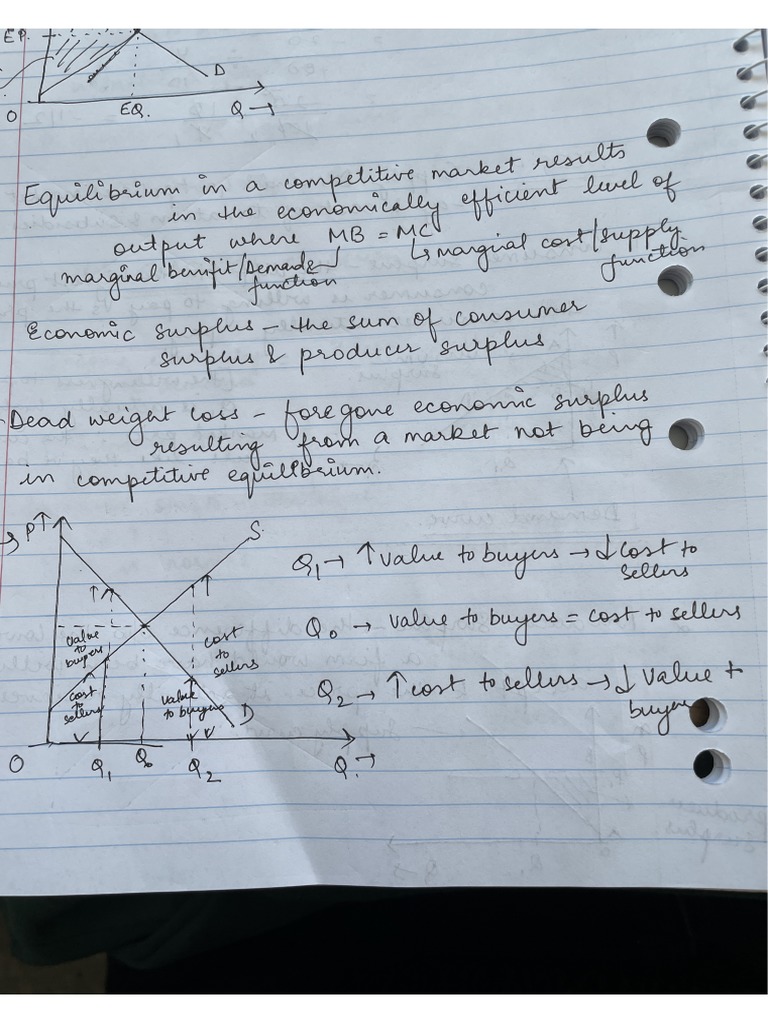 EP.
D
O
EQ.
Q →
Equilibrium in a competitive market results
in the economically efficient level of
output where MB = MC
marginal benifit/Demand
function
↳ margial cost/supply
function
Economic surplus – the sum of consumer
surplus & producer surplus
Dead weight loss – foregone economic surplus
resulting from a market not being
in competitive equilibrium.
P↑
S.
Q₁ → ↑ value to buyers → ↓ cost to
sellers
Q₀ → value to buyers = cost to sellers
value
to
buyers
cost
to
sellers
cost
to
sellers
value
to buyers
D
Q₂ → ↑ cost to sellers → ↓ value t
buyer
O
Q₁
Q₀
Q₂
Q. →